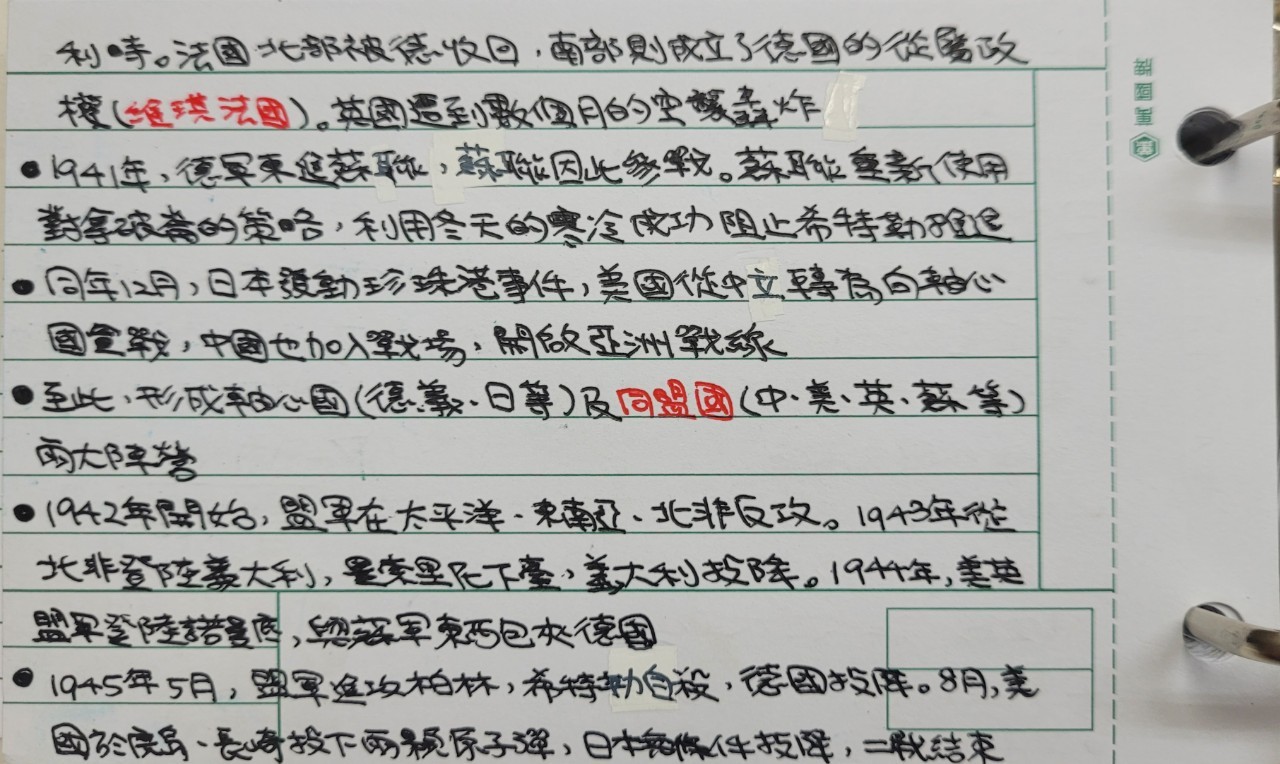 利時。法國北部被德收日，南部則成立了德國的從屬政
權(維琪法國)。英國遭到數個月的空襲轟炸
●1941年，德軍東進蘇聯，蘇聯因此參戰。蘇聯重新使用
對拿破崙的策略，利用冬天的寒冷成功阻止希特勒推進
●同年12月，日本發動珍珠港事件，美國從中立轉為向軸心
國宣戰，中國也加入戰場，開啟亞洲戰線
●至此，形成軸心國(德、義、日等)及同盟國(中、美、英、蘇等)
兩大陣營
●1942年開始，盟軍在太平洋、東南亞、北非反攻。1943年從
北非登陸義大利，墨索里尼下臺，義大利投降。1944年，美英
盟軍登陸諾曼底，與蘇軍東西包夾德國
●1945年5月，盟軍進攻柏林，希特勒自殺，德國投降。8月，美
國於廣島、長崎投下兩顆原子彈，日本無條件投降，二戰結束